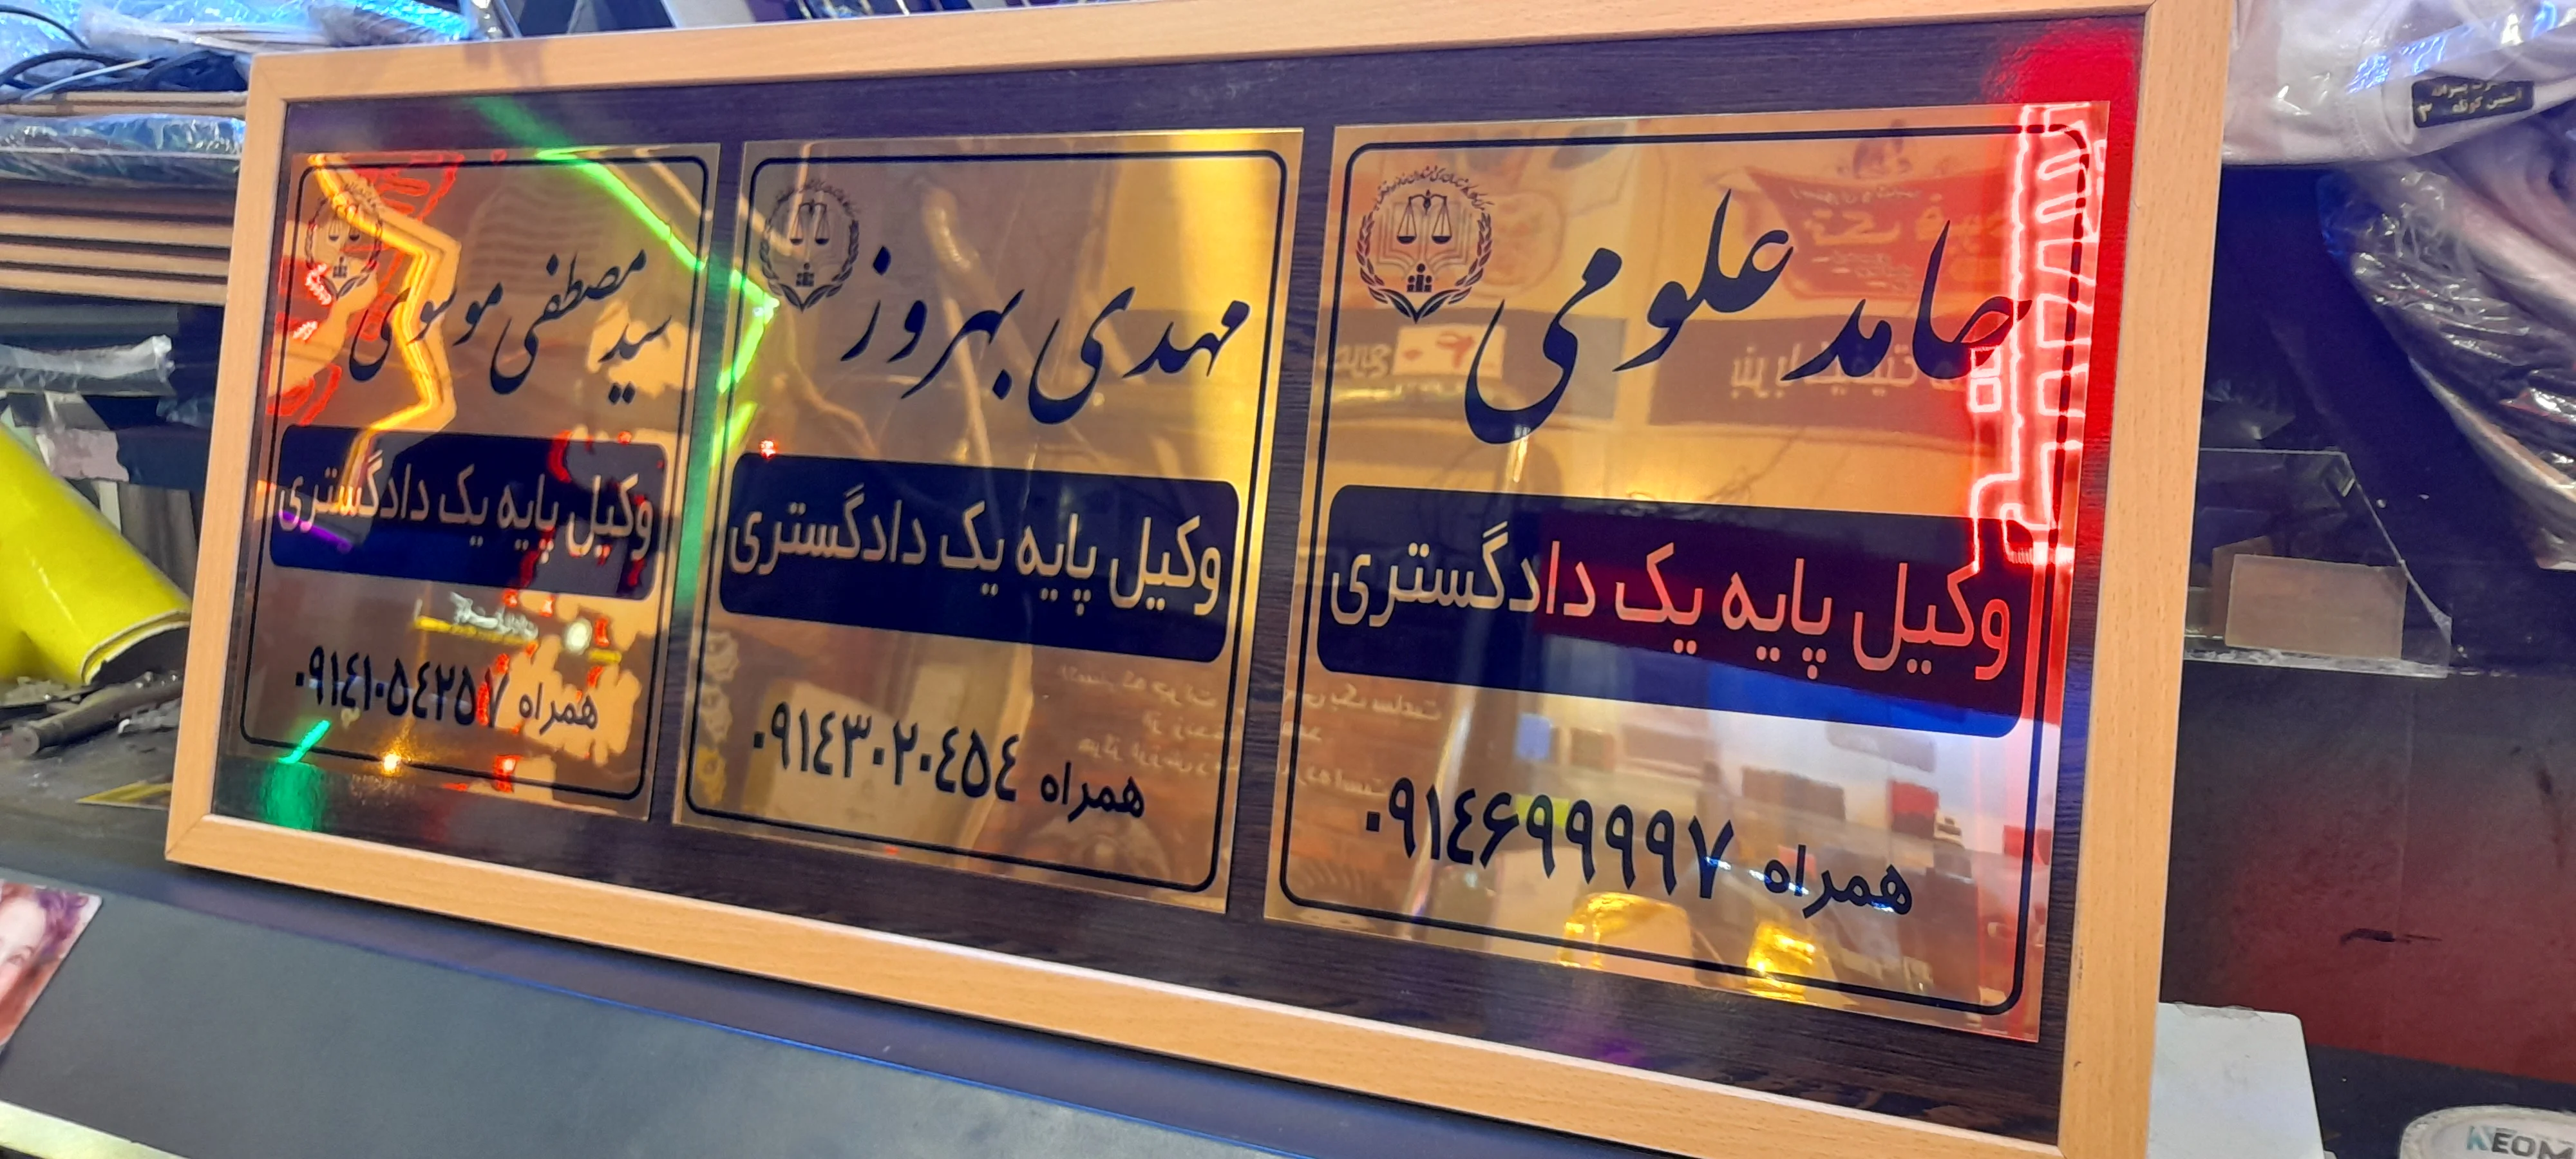 حامد علومی
وکیل پایه یک دادگستری
همراه ۰۹۱۴۶۹۹۹۹۹۷
مهدی بهروز
وکیل پایه یک دادگستری
همراه ۰۹۱۴۳۰۲۰۴۵۴
سید مصطفی موسوی
وکیل پایه یک دادگستری
همراه ۰۹۱۴۱۰۵۴۲۵۷
آستین کوتاه ۳